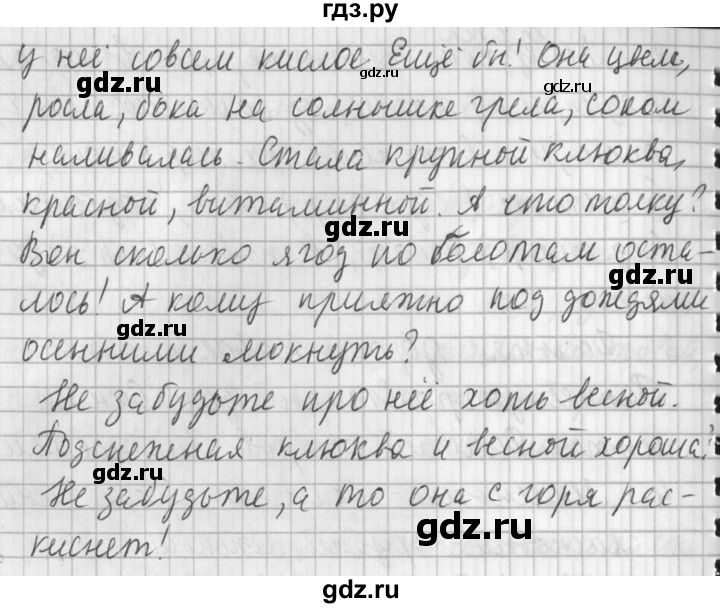 гдз.ру
у неё совсем кислое Ещё бы! Она цвела,
gdz.ru
gdz.ru
росла, бока на солнышке грела, соком
наливалась. Стала крупной клюква,
gdz.ru
красной, витаминной. А что толку?
Вон сколько ягод по болотам оста-
gdz.ru
лось! А кому приятно под дождями
gdz.ru
осенними мокнуть?
Не забудьте про неё хоть весной.
Подснежная клюква и весной хороша!
gdz.ru
Не забудьте, а то она с горя рас-
gdz.ru
киснет!
gdz.ru